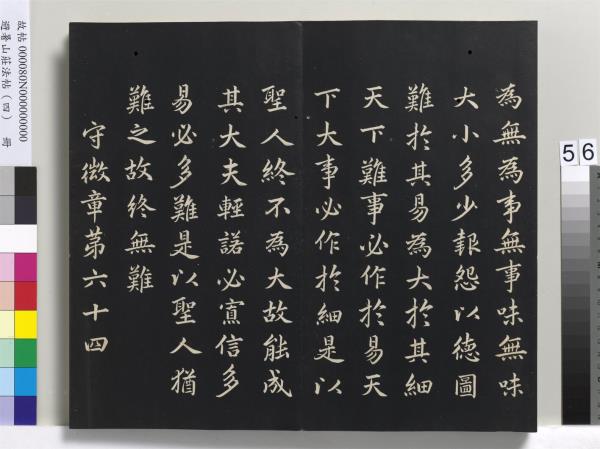 為無為事無事味無味
大小多少報怨以德圖
難於其易為大於其細
天下難事必作於易天
下大事必作於細是以
聖人終不為大故能成
其大夫輕諾必寡信多
易必多難是以聖人猶
難之故終無難
守微章第六十四
故帖 000080N000000000
避暑山莊法帖(四) 冊
56